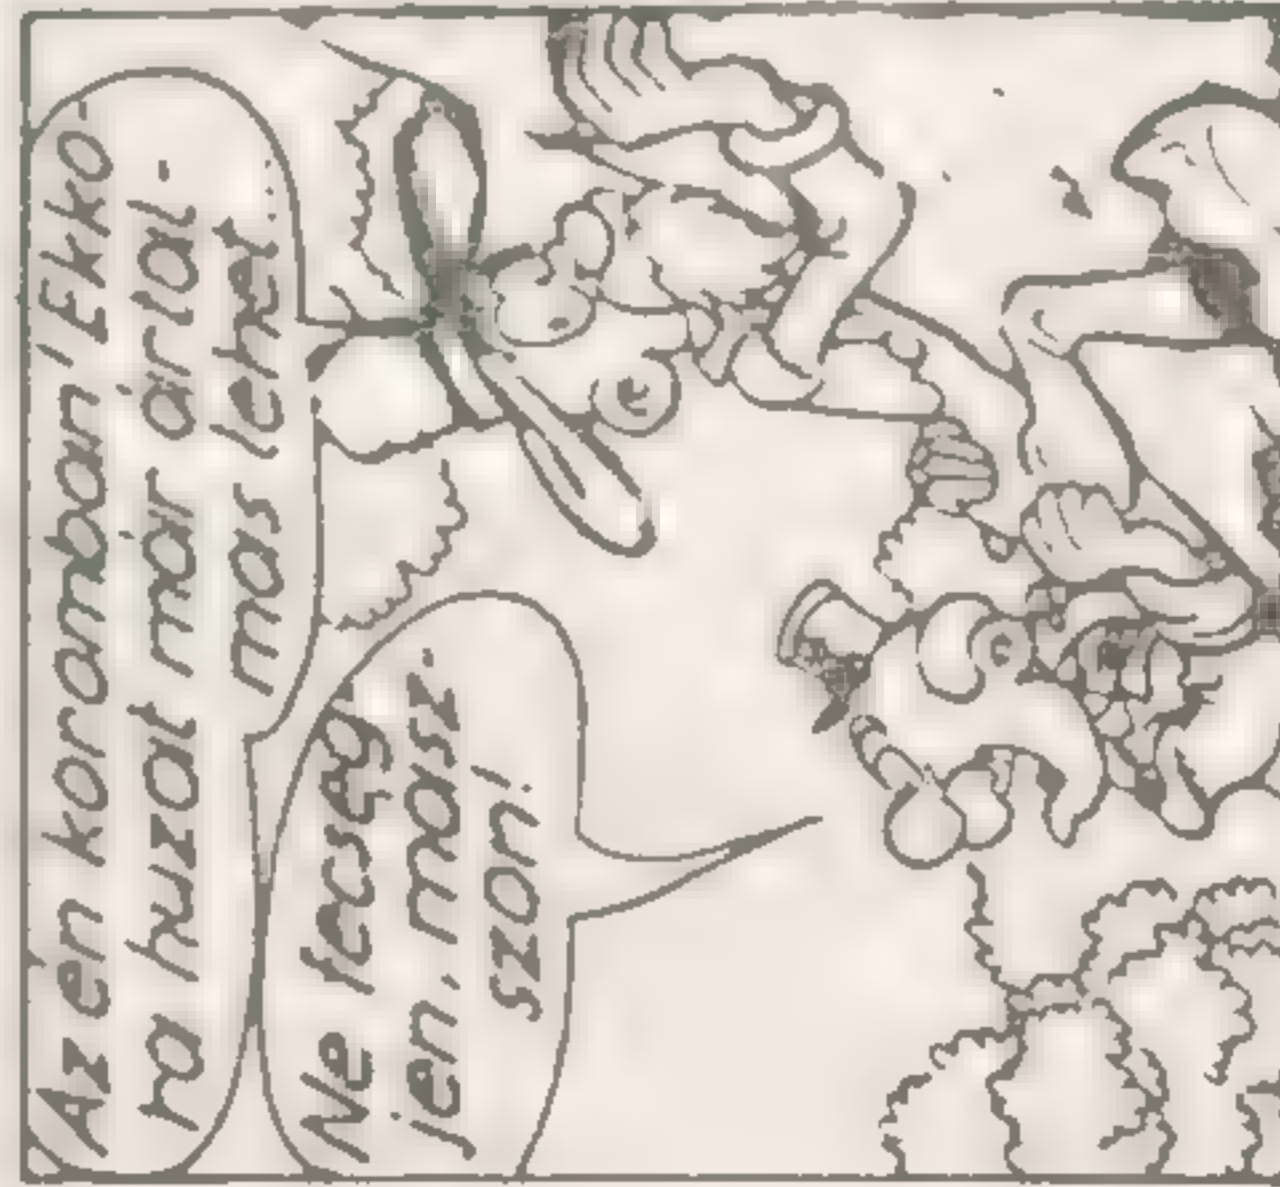 Az én koromban! Ekko-
ra huzat már ártal-
mas lehet...
Ne fecseg
jen, mász-
szon!